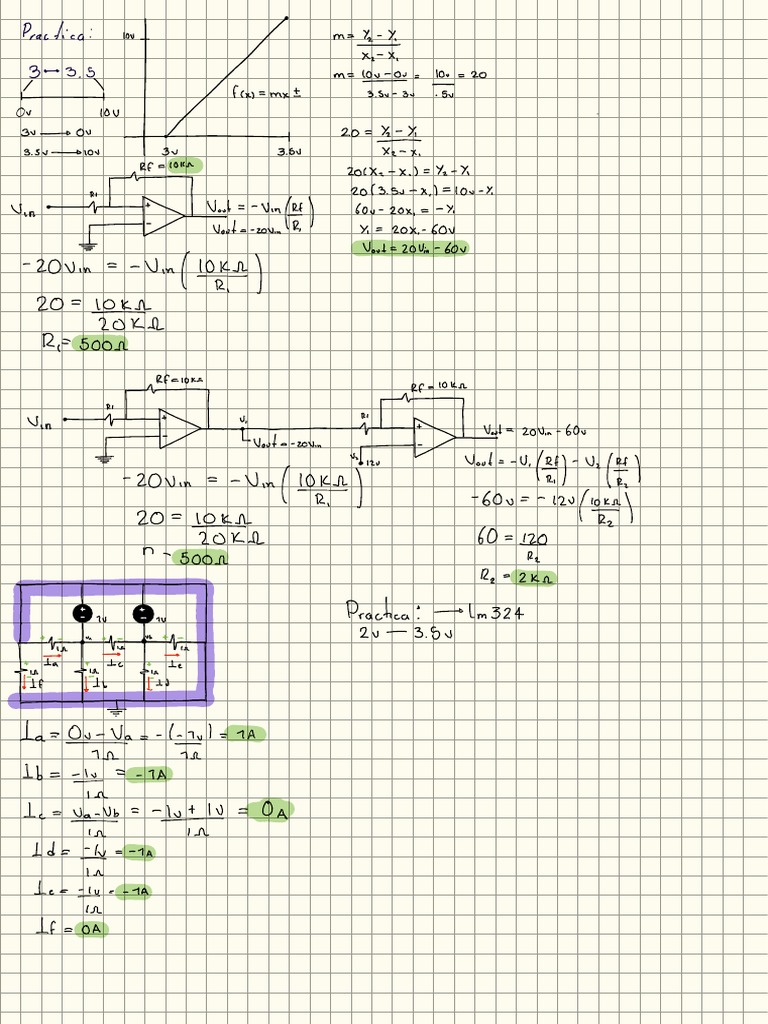 Practica:
3 ↔ 3.5
0v 10v
3v → 0v
3.5v → 10v
10v
f(x) = mx ±
3v 3.5v
m = Y₂ - Y₁ / X₂ - X₁
m = 10v - 0v / 3.5v - 3v = 10v / .5v = 20
20 = Y₂ - Y₁ / X₂ - X₁
20(X₂ - X₁) = Y₂ - Y₁
20(3.5v - X₁) = 10v - Y₁
60v - 20X₁ = -Y₁
Y₁ = 20X₁ - 60v
Vout = 20Vin - 60v
Rf = 10KΩ
R1
Vin
+
-
Vout = -Vin (Rf / R₁)
Vout = -20Vin
-20Vin = -Vin (10KΩ / R₁)
20 = 10KΩ / 20KΩ
R₁ = 500Ω
Rf = 10KΩ
R1
Vin
+
-
V₁
Vout = -20Vin
Rf = 10KΩ
R1
V₂
12v
+
-
Vout = 20Vin - 60v
Vout = -V₁ (Rf / R₁) - V₂ (Rf / R₂)
-60v = -12v (10KΩ / R₂)
60 = 120 / R₂
R₂ = 2KΩ
-20Vin = -Vin (10KΩ / R₁)
20 = 10KΩ / 20KΩ
500Ω
Practica: → Lm324
2v — 3.5v
1v 1v
Va Vb
1Ω 1Ω 1Ω
Ia Ic Ie
1Ω 1Ω 1Ω
If Ib Id
Ia = 0v - Va / 1Ω = -(-1v) / 1Ω = 1A
Ib = -1v / 1Ω = -1A
Ic = Va - Vb / 1Ω = -1v + 1v / 1Ω = 0A
Id = -1v / 1Ω = -1A
Ie = -1v / 1Ω = -1A
If = 0A